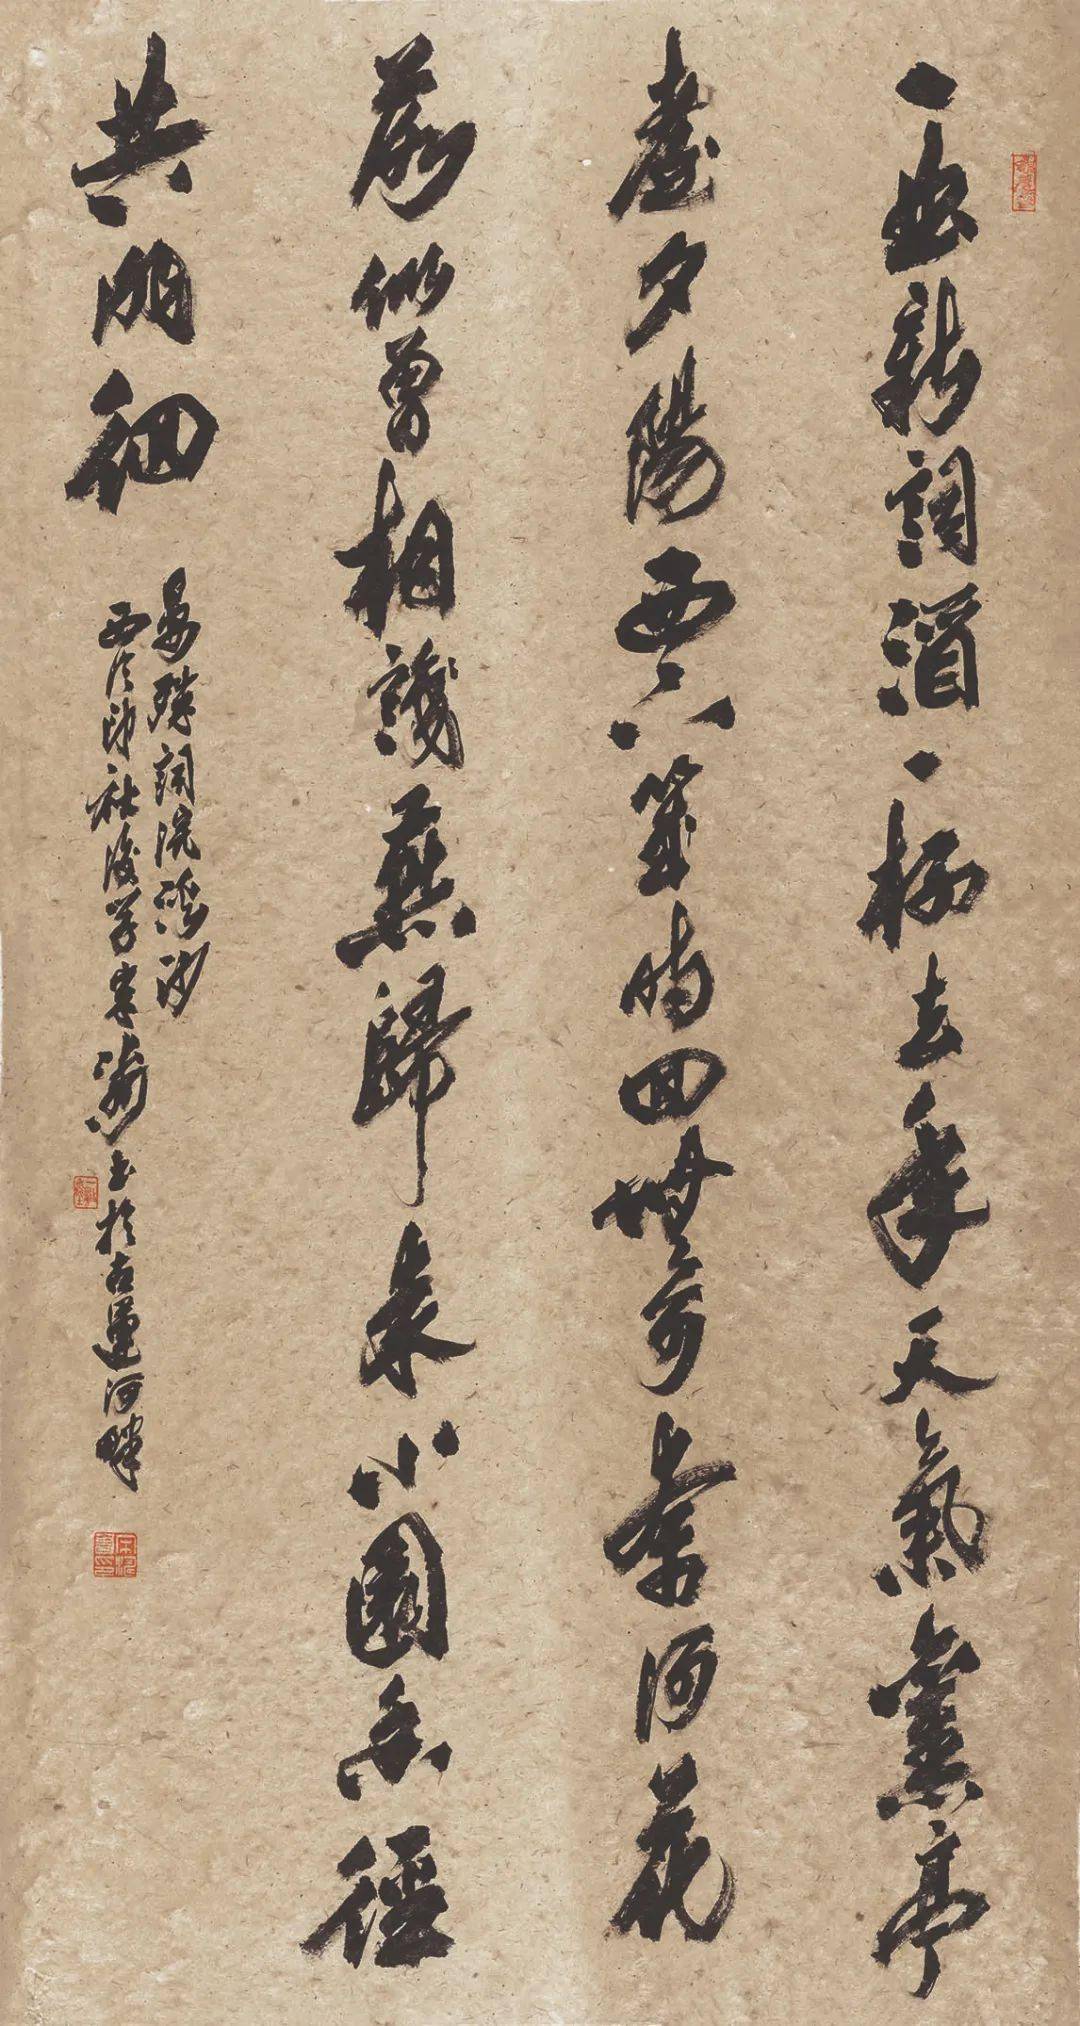 一曲新詞酒一杯去年天氣舊亭
臺夕陽西下幾時回無可奈何花
落似曾相識燕歸來小園香徑
徊
晏殊詞浣溪沙
西泠印社後學書於古運河畔